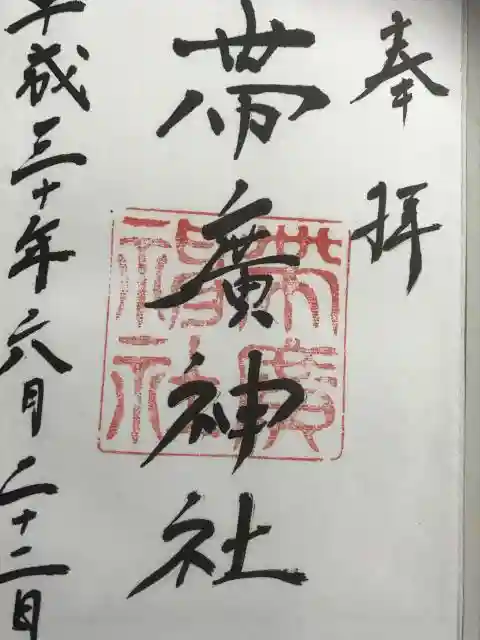 奉拝
帯廣神社
平成三十年六月二十二日
帯廣神社